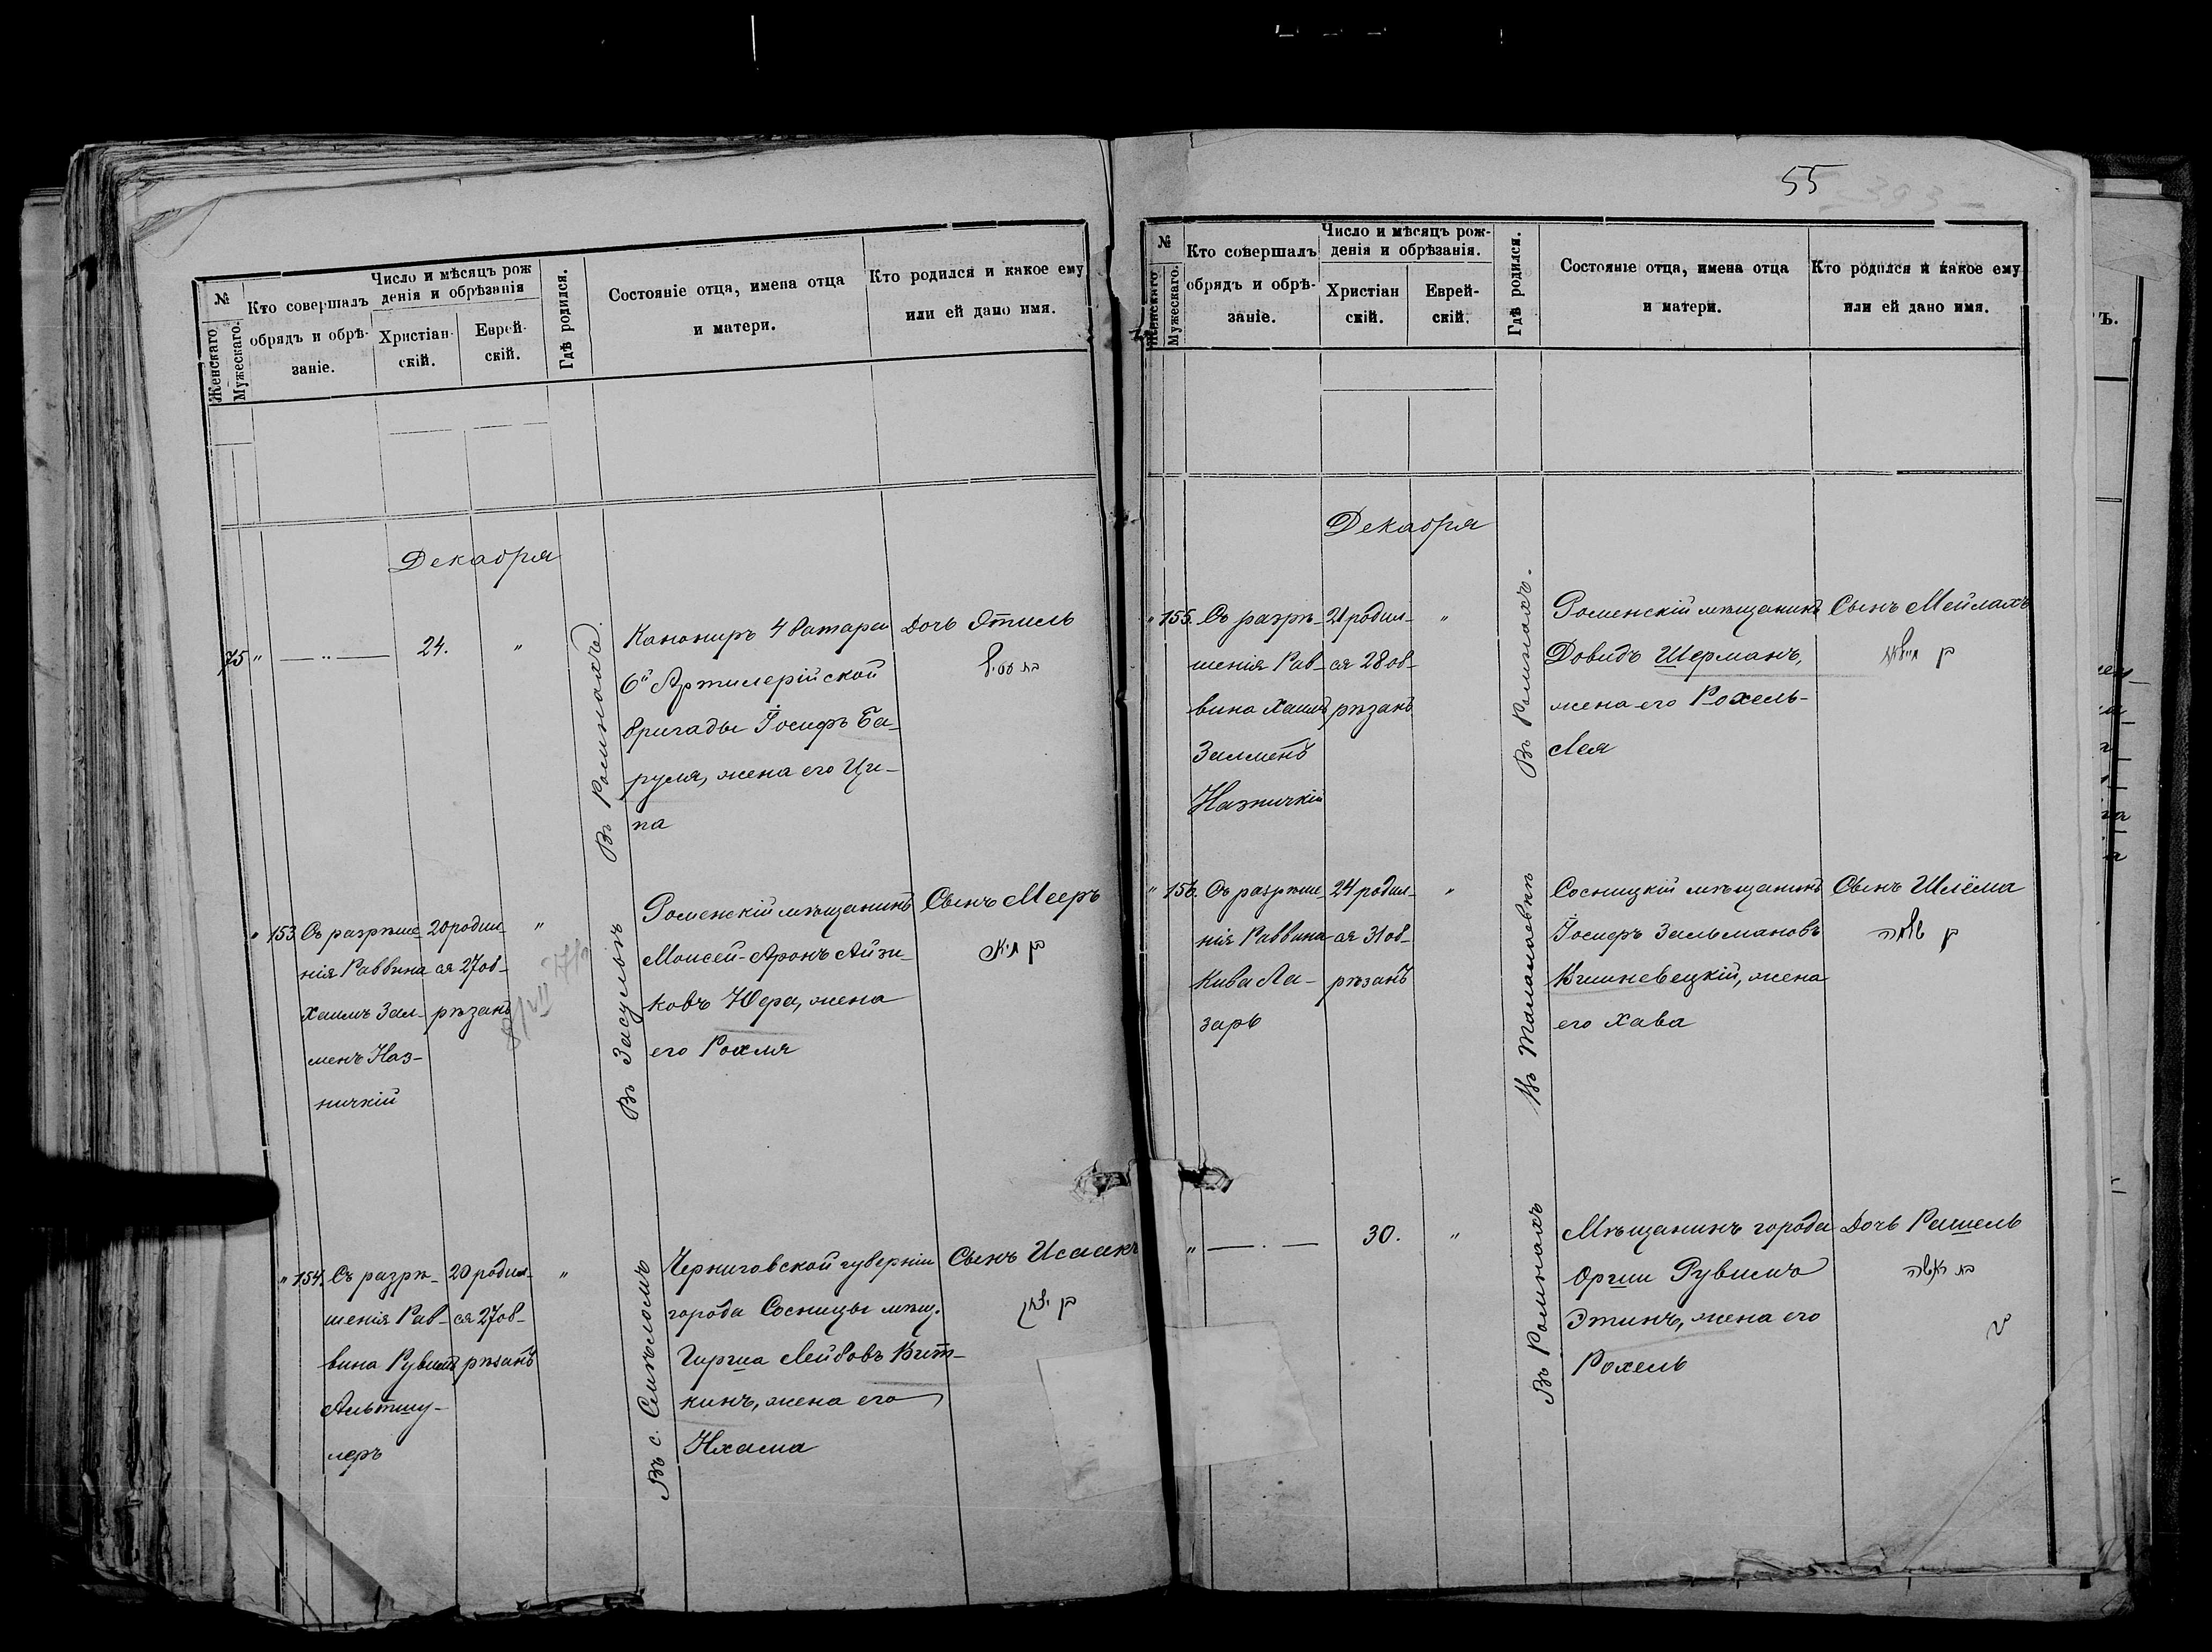 55
№
Женскаго
Мужескаго.
Кто совершалъ
обрядъ и обрѣ-
заніе.
Число и мѣсяцъ рож
денія и обрѣзанія
Христіан-
скій.
Еврей-
скій.
Гдѣ родился.
Состояніе отца, имена отца
и матери.
Кто родился и какое ему
или ей дано имя.
Декабря
75 " — " — 24. "
Въ Ромнахъ.
Канониръ 4 батареи
6й Артилерійской
бригады Іосифъ Ба-
руля, жена его Ци-
па
Дочь Этиль
" 153. Съ разрѣше-
нія Раввина
Хаимъ Зал-
менъ Наз-
ничкій
20 родил-
ся 27 об-
рѣзанъ
"
Въ Засульѣ
Роменскій мѣщанинъ
Моисей-Аронъ Айзи-
ковъ Юфа, жена
его Рохля
Сынъ Мееръ
" 154. Съ разрѣ-
шенія Рав-
вина Рувимъ
Альтшу-
леръ
20 родил-
ся 27 об-
рѣзанъ
"
Въ с.
Черниговской губерніи
города Сосницы мѣщ.
Гирша Лейбовъ Кит-
кинъ, жена его
Нхама
Сынъ Исаакъ
בן יצחק
№
Женскаго
Мужескаго.
Кто совершалъ
обрядъ и обрѣ-
заніе.
Число и мѣсяцъ рож-
денія и обрѣзанія.
Христіан
скій.
Еврей-
скій.
Гдѣ родился.
Состояніе отца, имена отца
и матери.
Кто родился и какое ему
или ей дано имя.
Декабря
" 155. Съ разрѣ-
шенія Рав-
вина Хаимъ
Залменъ
Назничкій
21 родил-
ся 28 об-
рѣзанъ
"
Въ Ромнахъ.
Роменскій мѣщанинъ
Довидъ Шерманъ,
жена его Рохель-
Лея
Сынъ Мейлахъ
" 156. Съ разрѣше-
нія Раввина
Кива Ла-
зарь
24 родил-
ся 31 об-
рѣзанъ
"
Въ Талалаевкѣ
Сосницкій мѣщанинъ
Іосифъ Зальмановъ
Вишневецкій, жена
его Хава
Сынъ Шлёма
בן שלמה
" — . — 30. "
Въ Ромнахъ
Мѣщанинъ города
Орши Рувимъ
Этинъ, жена его
Рохель
Дочь Рашель